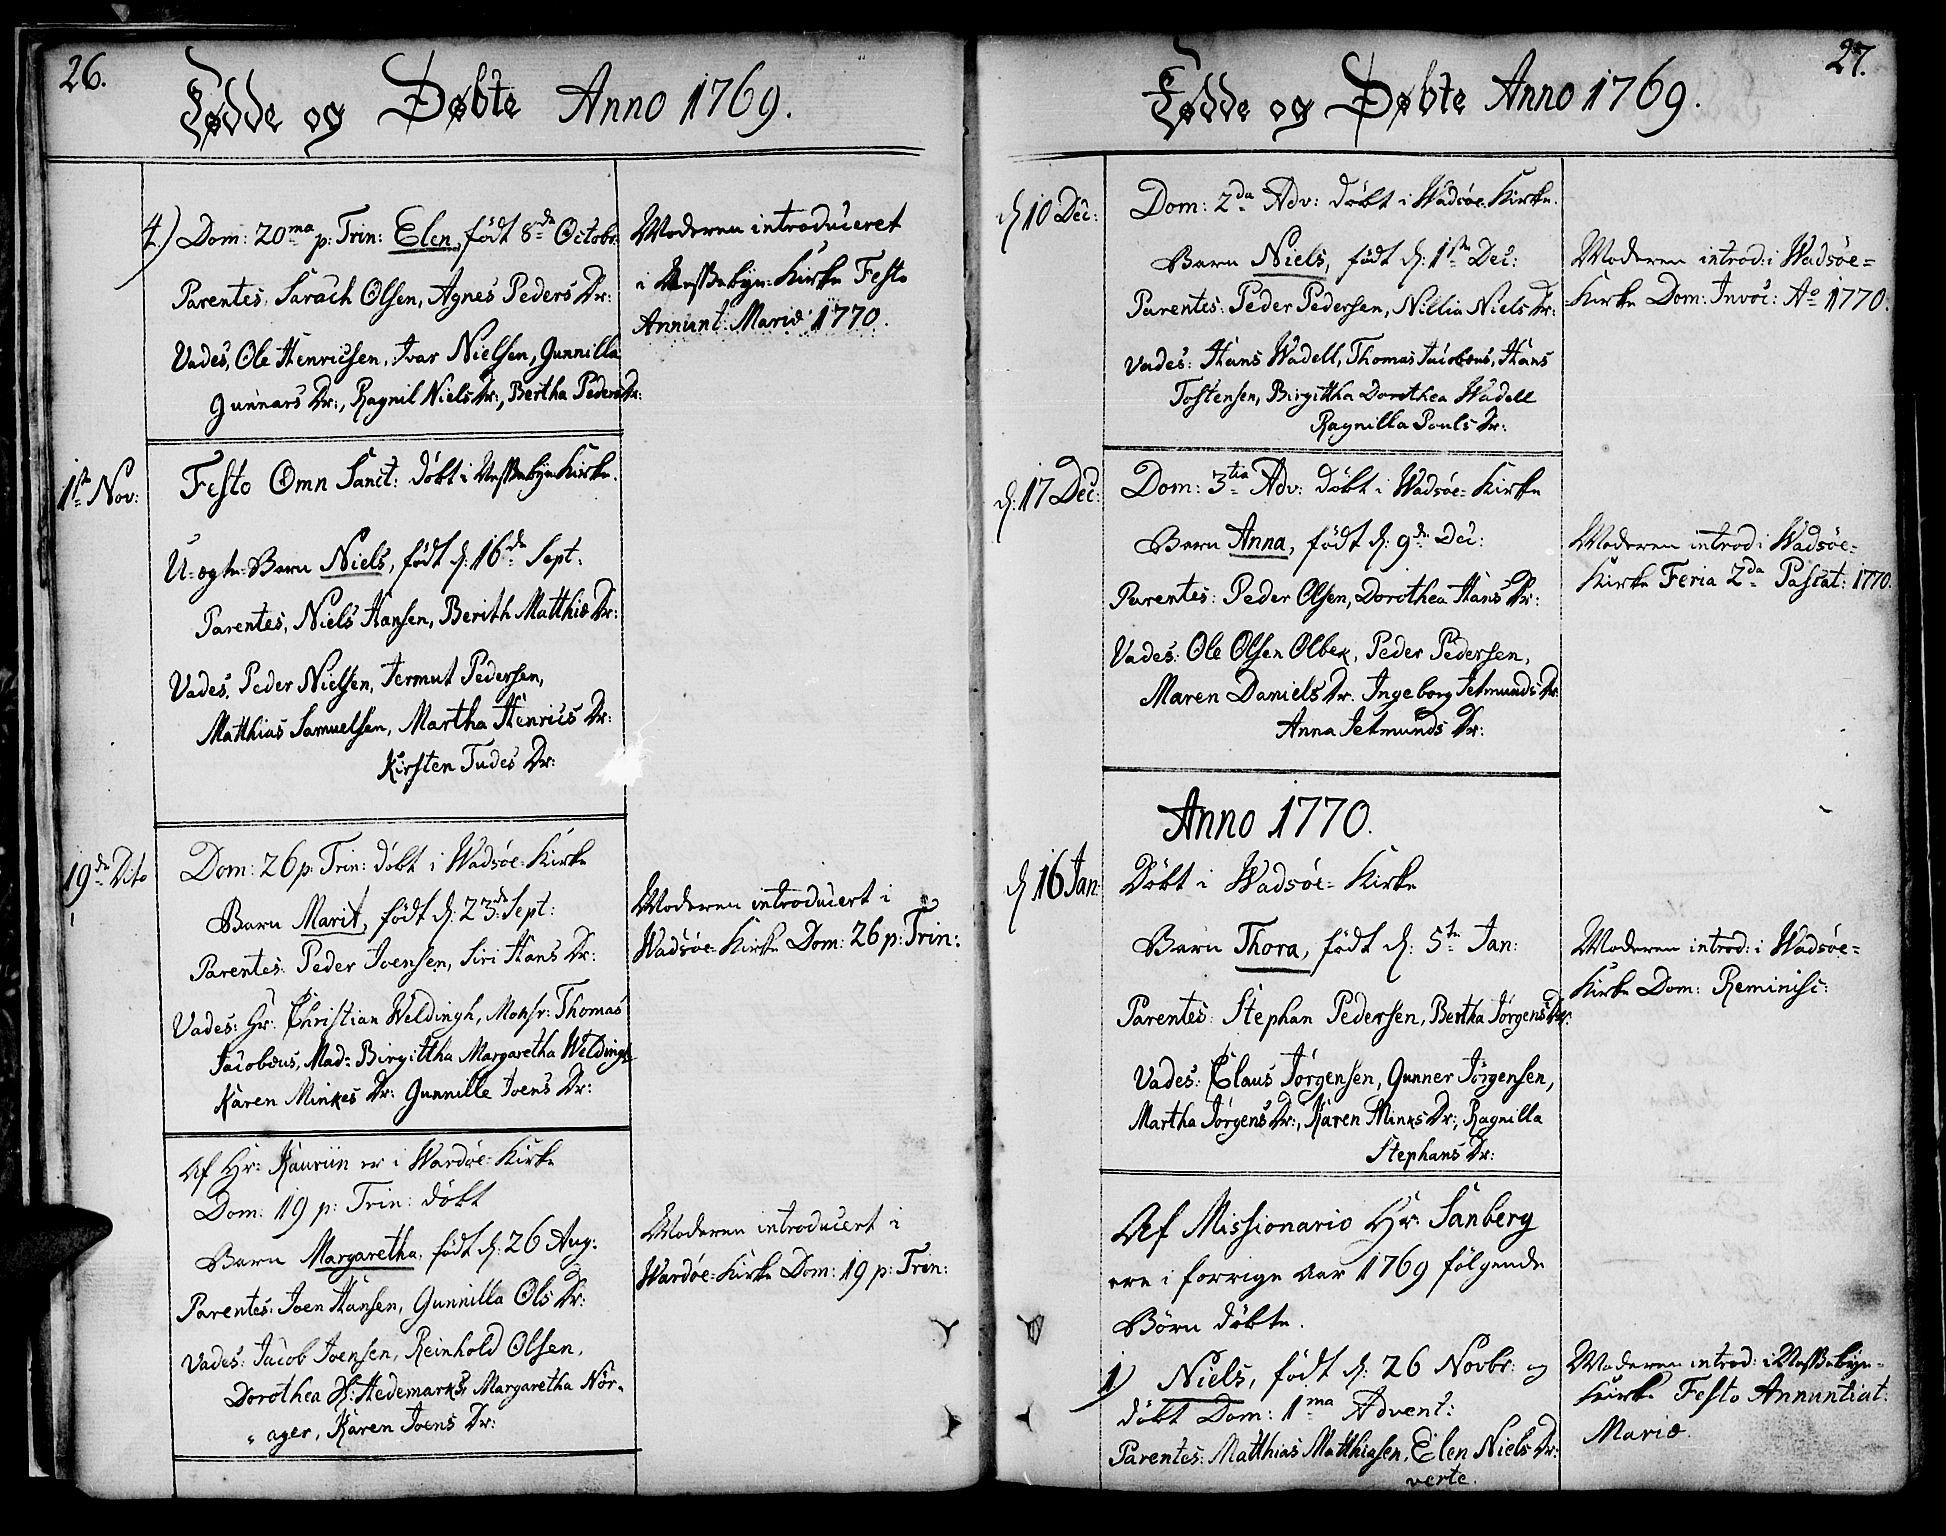 26.
Fødde og Døbte Anno 1769.
4.) Dom: 20ma p: Trin: Elen, født 8de Octobr:
Parentes, Sarach Olsen, Agnes Peders Dr:
Vades, Ole Henricsen, Ivar Nielsen, Gunnilla
Gunnars Dr:, Ragnil Niels Dr:, Bertha Peders Dr:
Moderen introduceret
i Nessebÿe-Kirke Festo
Annunt. Mariæ 1770.
1ste Nov:
Festo Omn Sanct: døbt i Nessebÿe Kirke.
U-ægte-Barn Niels, født d: 16de Sept:
Parentes, Niels Hansen, Berith Matthiæ Dr:
Vades, Peder Nielsen, Jermut Pedersen,
Matthias Samuelsen, Martha Henrics Dr:
Kirsten Tudes Dr:
19de Dito
Dom: 26 p: Trin: døbt i Wadsøe-Kirke
Barn Marit, født d: 23de Sept:
Parentes: Peder Joensen, Siri Hans Dr:
Vades: Hr: Christian Weldingh, Monsr: Thomas
Jacobæus, Mad: Birgittha Margaretha Weldingh
Karen Minkes Dr: Gunnille Joens Dr:
Moderen introducert i
Wadsøe-Kirke Dom: 26 p: Trin:
Af Hr: Kauriin er i Wardøe-Kirke
Dom: 19 p: Trin: døbt
Barn Margaretha, født d: 26 Aug:
Parentes: Joen Hansen, Gunnilla Ols Dr:
Vades: Jacob Joensen, Reinhold Olsen,
Dorothea Hedemarks, Margaretha Nør-
ager, Karen Joens Dr:
Moderen introducert i
Wardøe-Kirke Dom: 19 p: Trin:
27.
Fødde og Døbte Anno 1769.
d 10 Dec:
Dom: 2da Adv: døbt i Wadsøe-Kirke.
Barn Niels, født d: 1ste Dec:
Parentes: Peder Pedersen, Nillia Niels Dr:
Vades: Hans Wadell, Thomas Jacobæus, Hans
Tostensen, Birgittha Dorothea Wadell
Ragnilla Pouls Dr:
Moderen introd: i Wadsøe-
Kirke Dom: Invoc: Ao 1770.
d: 17 Dec:
Dom: 3tia Adv: døbt i Wadsøe-Kirke
Barn Anna, født d: 9de Dec:
Parentes: Peder Olsen, Dorothea Hans Dr:
Vades: Ole Olsen Olbek, Peder Pedersen,
Maren Daniels Dr. Ingeborg Jetmunds Dr
Anna Jetmunds Dr:
Moderen introd: i Wadsøe-
Kirke Feria 2da Pascat: 1770.
Anno 1770.
d 16 Jan:
Døbt i Wadsøe-Kirke
Barn Thora, født d: 5te Jan:
Parentes: Stephan Pedersen, Bertha Jørgens Dr:
Vades: Claus Jørgensen, Gunner Jørgensen,
Martha Jørgens Dr:, Karen Minks Dr:, Ragnilla
Stephans Dr:
Moderen introd: i Wadsøe-
Kirke Dom: Reminisc:
Af Missionario Hr: Sanberg
ere i forrige Aar 1769 følgende
Børn døbte.
1) Niels, født d: 26 Novbr: og
døbt Dom: 1ma Advent:
Parentes: Matthias Matthiasen, Elen Niels Dr:
verte.
Moderen introd: i Nessebÿe-
Kirke Festo Annuntiat:
Mariæ.